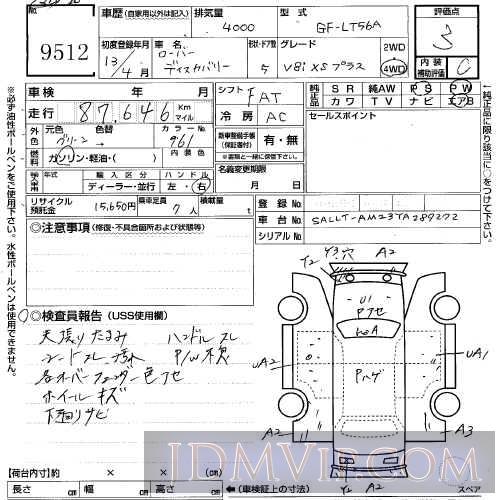 9512
車歴 (自家用以外は記入) 排気量 型式
4000 GF-LT56A
初度登録年月 車名 ドア数 グレード 2WD
13/4月 ローバー ディスカバリー 5 V8i XS プラス 4WD
評価点
3
内装補助評価 C
車検 年 月 シフト FAT
走行 87,646 Km マイル 冷房 AC
純正品 SR 純AW PS PW
カワ TV ナビ エアB
外色 元色 グリーン 色替 カラーNo. 961
燃料 ガソリン・軽油・( ) 内装色
新車整備手帳 (保証書付) 有・無
※書類と一緒に保管下さい。
セールスポイント
輸入車 年式 輸入区分 ハンドル
ディーラー・並行 左・右
名義変更期限
月 日
リサイクル預託金 15,650円 乗車定員 7人 積載量 t
登録No.
車台No. SALLT-AM23TA289272
シリアルNo.
◎注意事項 (修復・不具合箇所および状態等)
◎検査員報告 (USS使用欄)
天張りたるみ ハンドルスレ
P/W不良
各オーバーフェンダー色フセ
ホイールキズ
下回りサビ
Y2 Y3 穴 A2
U1
Pフセ
Pハゲ
UA2 UA1
A2 A3
Y2 A2
【荷台内寸】約 × × (cm)
長さ cm 幅 cm 高さ cm ←(車検証上の寸法) スペア
※必ず油性ボールペンをご使用下さい。水性ボールペンは使用できません。
←純正品に限り該当に○をつけて下さい。
IDMVIP.COM